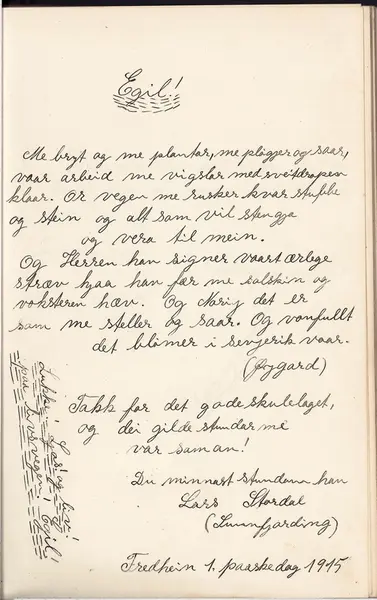 Egil!
Me bryt og me plantar, me pløgjer og saar,
vaar arbeid me vigslar med sveitdropen
klaar. Or vegen me rusker kvar stubbe
og stein og alt som vil stengja
og vera til mein.
Og Herren han signer vaart ærlege
stræv hjaa han fær me solskin og
voksteren hæv. Og Norig det er
som me steller og saar. Og vonfullt
det blømer i sevjerik vaar.
(Øygard)
Takk for det gode skulelaget,
og dei gilde stundar me
var saman!
Du minnast stundom han
Lars Stordal
(Sunnfjording)
Fredheim 1. paaskedag 1915
Lukke! Ljos og liv!
paa livsvegen, Egil!